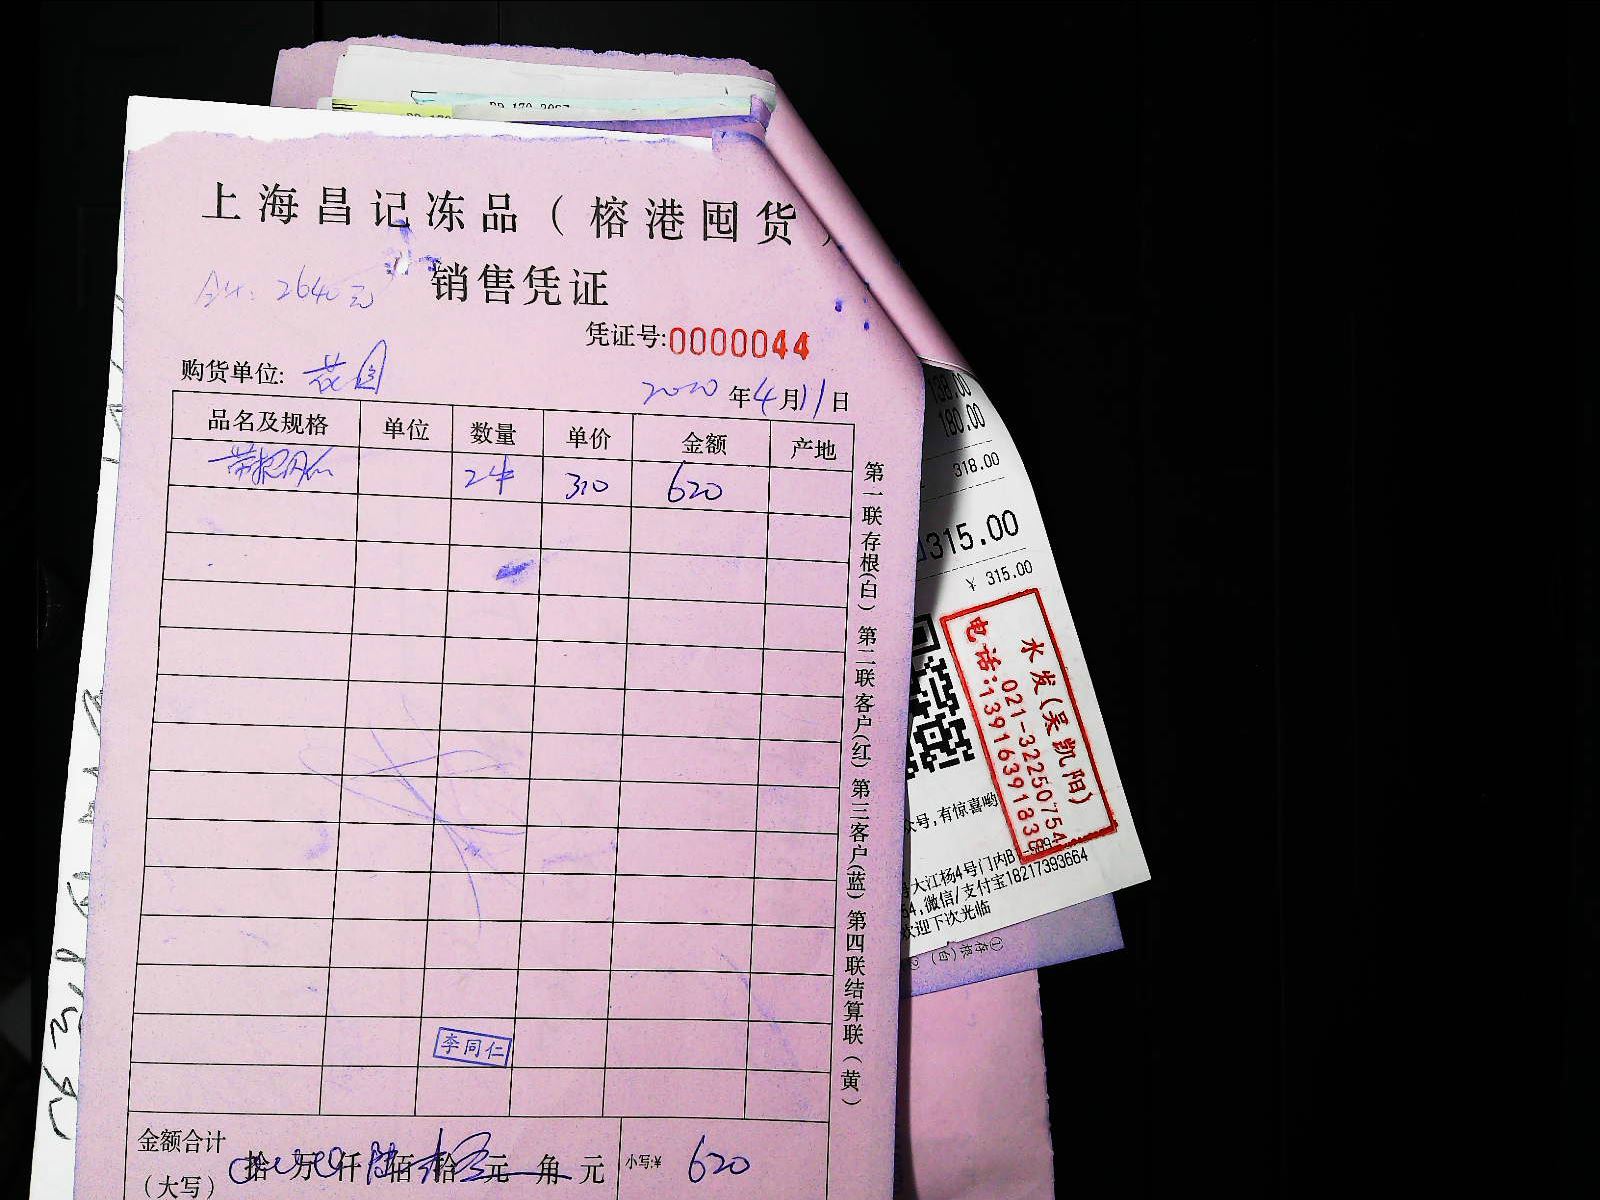 上海昌记冻品（榕港囤货）
销售凭证
合计：2640元
凭证号:0000044
购货单位: 花园
2020年4月11日
品名及规格 单位 数量 单价 金额 产地
2件 310 620
李同仁
金额合计
（大写）
拾 万 仟 陆佰 拾 元 角 元
小写:¥ 620
第一联存根(白) 第二联客户(红) 第三客户(蓝) 第四联结算联(黄)
138.00
180.00
318.00
315.00
¥ 315.00
水发(吴凯阳)
021-32250754
电话:13916391838
众号,有惊喜哟
大江杨4号门内B
54,微信/支付宝18217393664
欢迎下次光临
①存根(白)